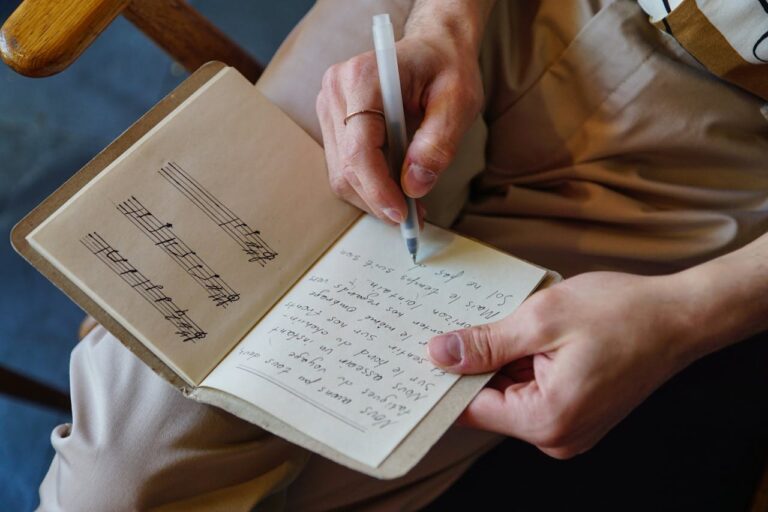 Nous avons pu tous deux
fatigués du voyage
Nous asseoir un instant
Sur le bord du chemin-
sentir sur nos fronts
le même ombrage
nos regards vers
horizon lointain ?
Mais le temps suit son
Sol ne pas